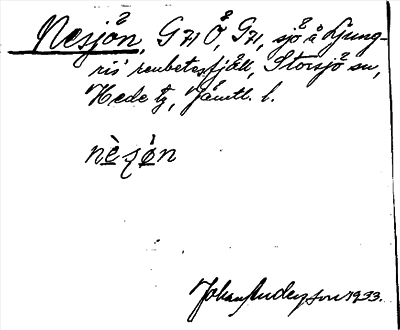 Nesjön, G 71 Ö, G 71, sjö å Ljung-
ris' renbetesfjäll, Storsjö sn,
Hede tg, Jämtl. l.
nèsi̯ön
Johan Anderzson 1933.